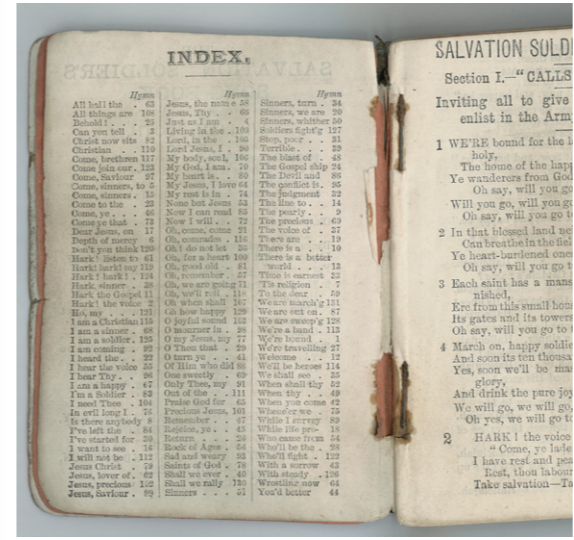 INDEX.
Hymn
All hail the . 63
All things are 108
Behold! . . . 25
Can you tell . 3
Christ now sits 82
Christian . . 110
Come, brethren 117
Come join our, 122
Come, Saviour 97
Come, sinners, to 5
Come, sinters . 15
Come to the . 23
Come, ye . . . 46
Come ye that . 73
Dear Jesus, on 17
Depth of mercy 6
Don't you think 120
Hark! listen to 61
Hark! hark! my 119
Hark! hark! . 124
Hark, sinner . 38
Hark the Gospel 11
Hark! the voice 2
Ho, my . . . 121
I am a Christian 115
I am a sinner . 68
I am a soldier, 125
I am coming . 92
I heard the . . 22
I hear the voice 55
I hear Thy . . 96
I am a happy . 67
I'm a Soldier . 83
I need Thee . 104
In evil long I . 76
Is there anybody 8
I've left the . 84
I've started for 39
I want to see . 16
I will not be . 112
Jesus Christ 79
Jesus, lover of, 62
Jesus, precious 102
Jesus, Saviour . 99
Hymn
Jesus, the name 58
Jesus, Thy . . 66
Just as I am . 4
Living in the . 109
Lord, in the . 74
Lord Jesus, I . 90
My body, soul, 106
My God, I am . 70
My heart is . . 89
My Jesus, I love 64
My rest is in . 74
None but Jesus 53
Now I can read 85
Now I will . . 72
Oh, come, come 21
Oh, comrades . 116
Oh I do not let 35
Oh, for a heart 100
Oh, good old . 81
Oh, remember . 57
Oh, we are going 71
Oh, we'll roll . 118
Oh when shall 107
Oh how happy 129
O joyful sound 123
O mourner in . 98
O my Jesus, my 77
O Thou that . 29
O turn ye . . 41
Of Him who did 88
One sweetly . 69
Only Thee, my 91
Out of the . . 111
Praise God for 65
Precious Jesus, 101
Remember . . 47
Rejoice, ye . . 43
Return . . . 26
Rock of Ages . 54
Sad and weary 93
Saints of God . 78
Shall we ever . 40
Shall we rally 130
Sinners . . . 51
Hymn
Sinners, turn . 34
Sinners, we are 20
Sinners, whither 50
Soldiers fight'g 127
Stop, poor . . 31
Terrible . . . 39
The blast of . 48
The Gospel ship 24
The Devil and 86
The conflict is. 95
The judgment 32
The line to . . 14
The pearly . . 9
The precious . 69
The voice of . 37
There are . . 19
There is a . . 10
There is a better
world . . . 13
Time is earnest 52
'Tis religion . 7
To the dear . 59
We are march'g 131
We are out on . 87
We are sweep'g 128
We're a band . 113
We're bound . 1
We're travelling 27
Welcome . . 12
We'll be heroes 114
We shall see . 35
When shall thy 52
When thy . . 49
When you come 42
Whene'er we . 75
While I hurry 80
While life pro- 18
Who came from 54
Who'll be the . 28
Who'll fight . 122
With a sorrow 43
With steady . 126
Wrestling now 64
You'd better 44
SALVATION SOLDI
Section I.—"CALLS
Inviting all to give
enlist in the Arm
1 WE'RE bound for the l
holy,
The home of the happ
Ye wanderers from God
Oh say, will you go
Will you go, will you go
Oh say, will you go t
2 In that blessed land ne
Can breathe in the fiel
Ye heart-burdened ones
Oh say, will you go t
3 Each saint has a mans
nished,
Ere from this small hous
Its gates and its towers
Oh say, will you go to t
4 March on, happy soldie
And soon its ten thousa
Yes, soon we'll be mar
glory,
And drink the pure joy
We will go, we will go,
Oh yes, we will go to
2 HARK! the voice
"Come, ye lade
I have rest and pea
Rest, thou labour
Take salvation—Ta